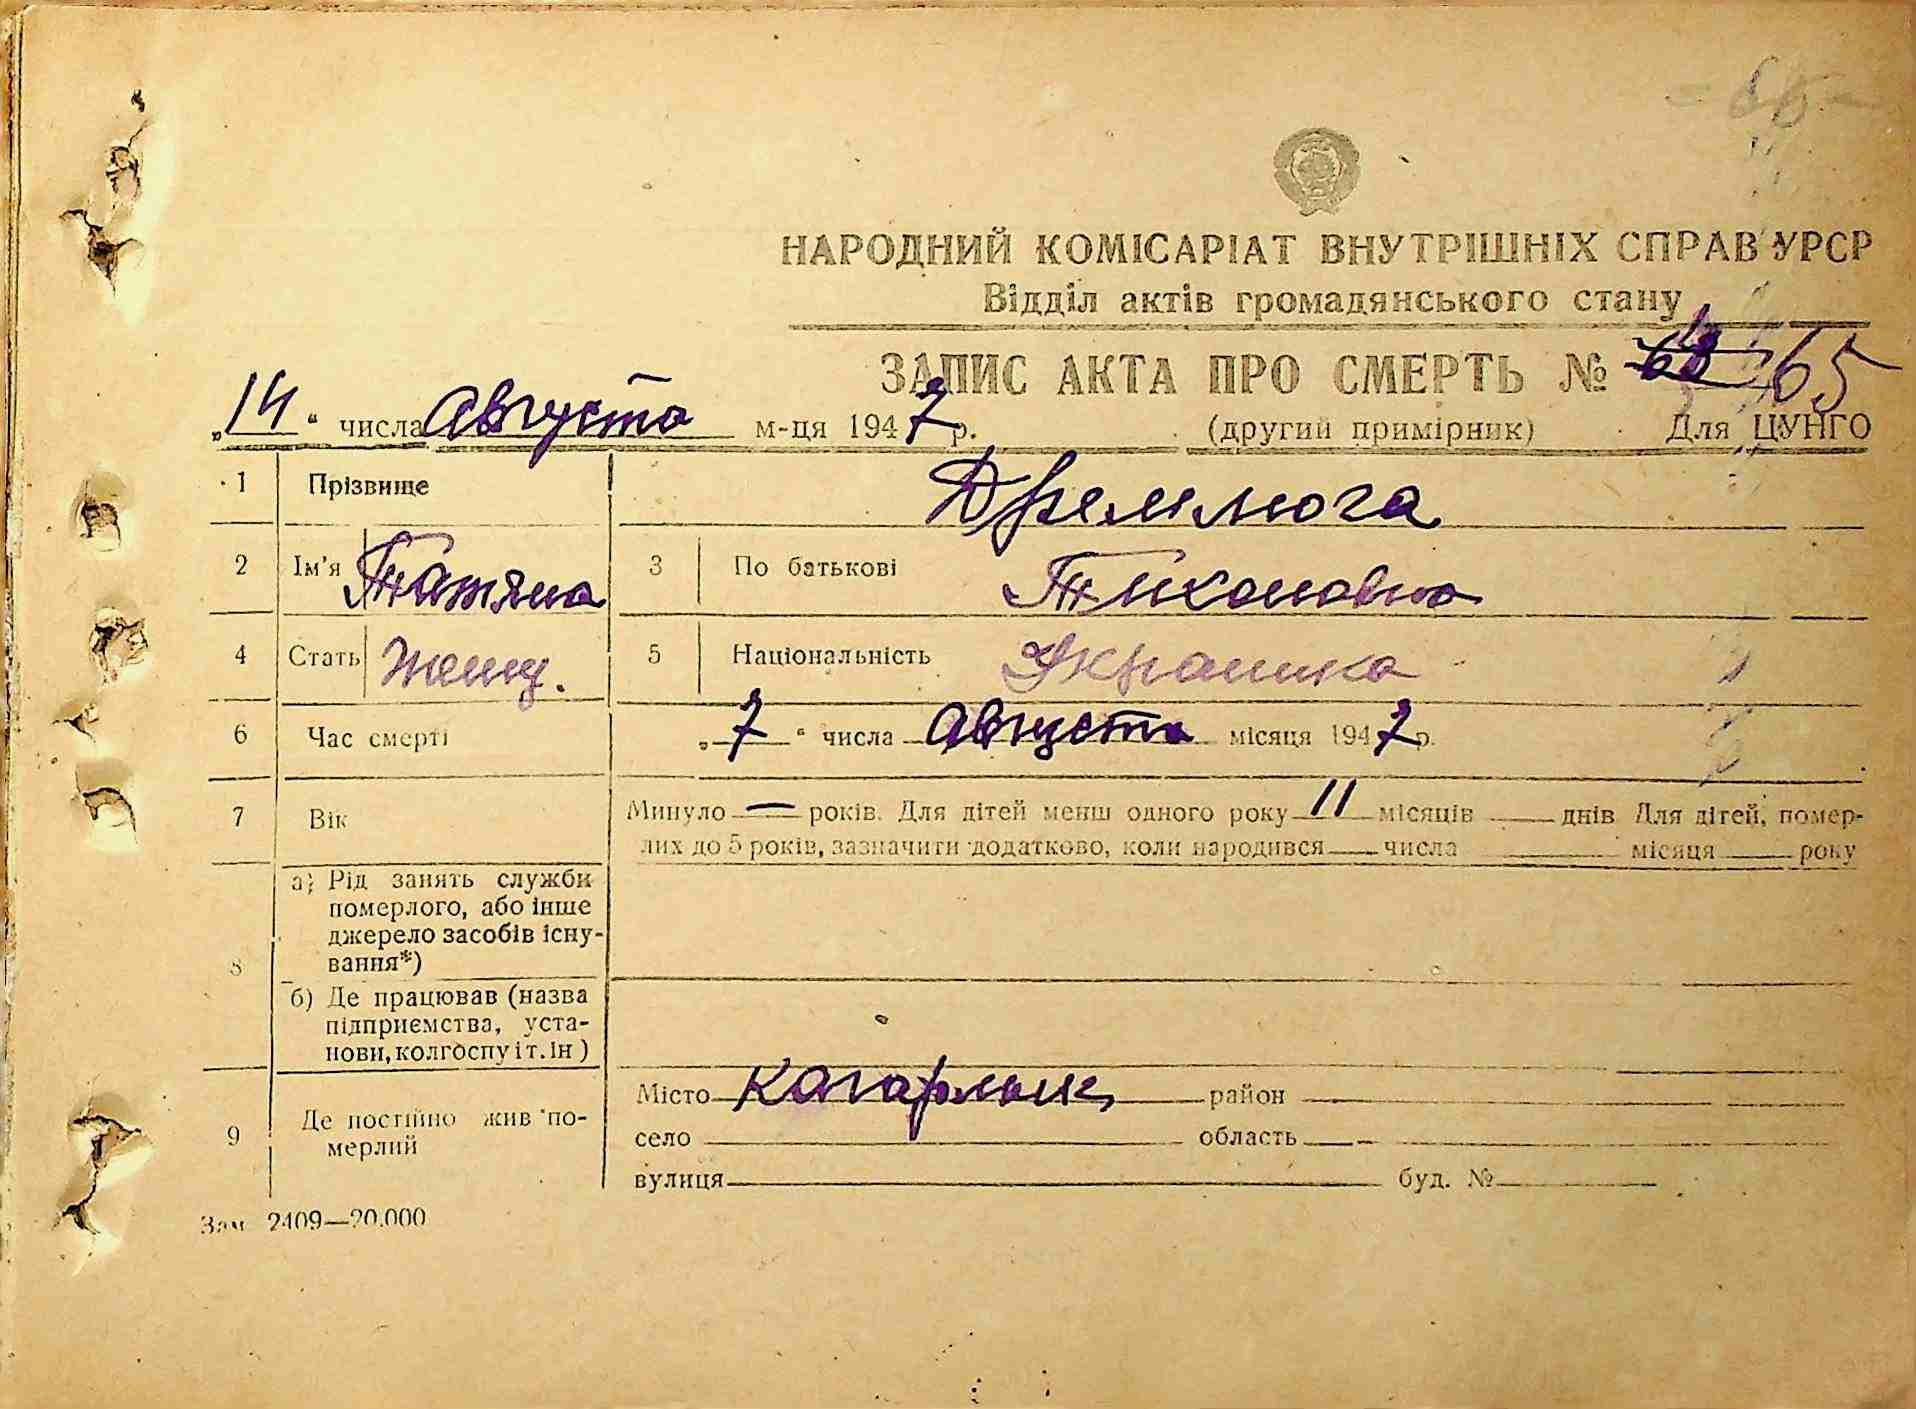 НАРОДНИЙ КОМІСАРІАТ ВНУТРІШНІХ СПРАВ УРСР
Відділ актів громадянського стану
ЗАПИС АКТА ПРО СМЕРТЬ № 65
„14“ числа Августа м-ця 1947 р. (другий примірник) Для ЦУНГО
1 Прізвище Дремлюга
2 Ім'я Татяна 3 По батькові Тихоновна
4 Стать Женщ. 5 Національність Украинка
6 Час смерті „7“ числа Августа місяця 1947 р.
7 Вік Минуло — років. Для дітей менш одного року 11 місяців днів Для дітей, помер-
лих до 5 років, зазначити додатково, коли народився числа місяця року
8 а) Рід занять служби
померлого, або інше
джерело засобів існу-
вання*)
б) Де працював (назва
підприємства, уста-
нови, колгоспу і т. ін)
9 Де постійно жив по-
мерлий
Місто Кагарлык район
село область
вулиця буд. №
Зам 2409—20.000